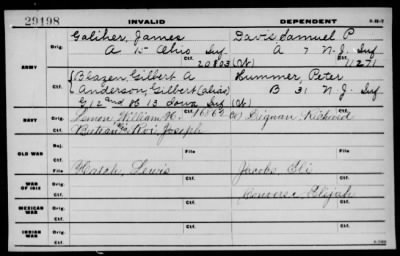 29198 INVALID DEPENDENT
ARMY
Orig.
Galiher, James Davis Samuel P
A 15 Ohio Inf A 7 N.J. Inf
Ctf. 20803 Ctf. 11271
Orig. { Blazen, Gilbert A Hummer, Peter
Anderson, Gilbert (alias) B 31 N.J. Inf
G 12 and B 13 Iowa Inf
Ctf.
NAVY
Orig. Simon, William H. Dignan, Richard
Ctf.
OLD WAR
Orig.
Ctf.
WAR OF 1812
Orig. Hatch, Lewis Jacobs, Eli
Ctf. Converse, Elijah
MEXICAN WAR
Orig.
Ctf.
INDIAN WAR
Orig.
Ctf.